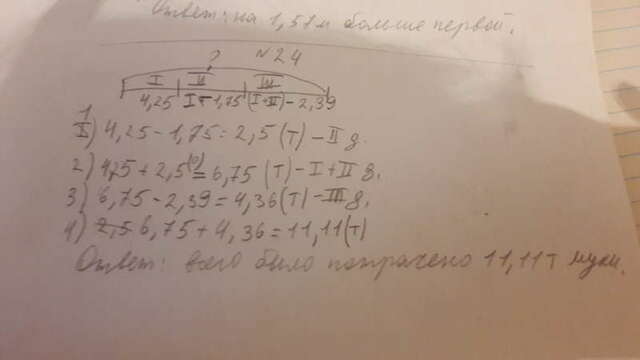 Ответ: на 1,51 м больше первый.
N24
?
I | II | III
4,25 | I-1,75 | (I+II)-2,39
1) 4,25-1,75=2,5(т)-II д.
2) 4,25+2,5=6,75(т)-I+II д.
3) 6,75-2,39=4,36(т)-III д.
4) 6,75+4,36=11,11(т)
Ответ: всего было потрачено 11,11т муки.